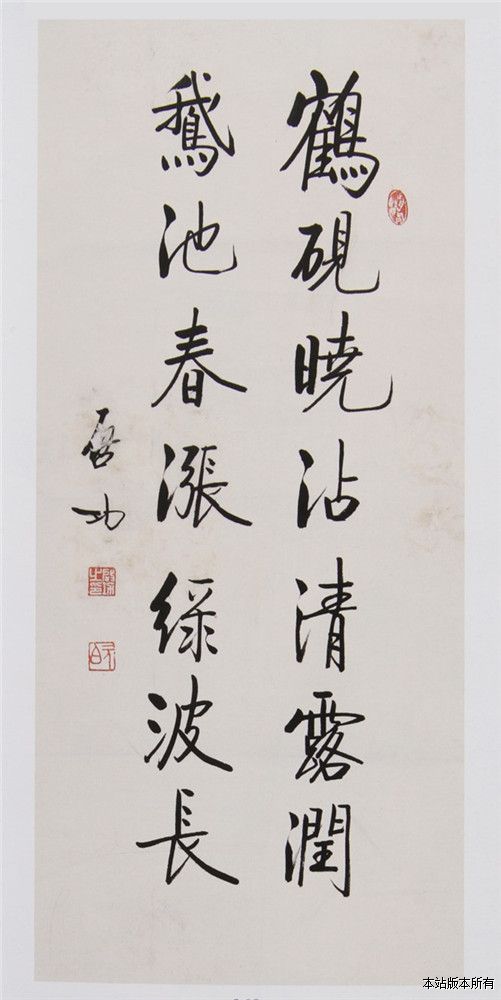 鶴硯曉沾清露潤
鵞池春漲緑波長
启功
本站版本所有